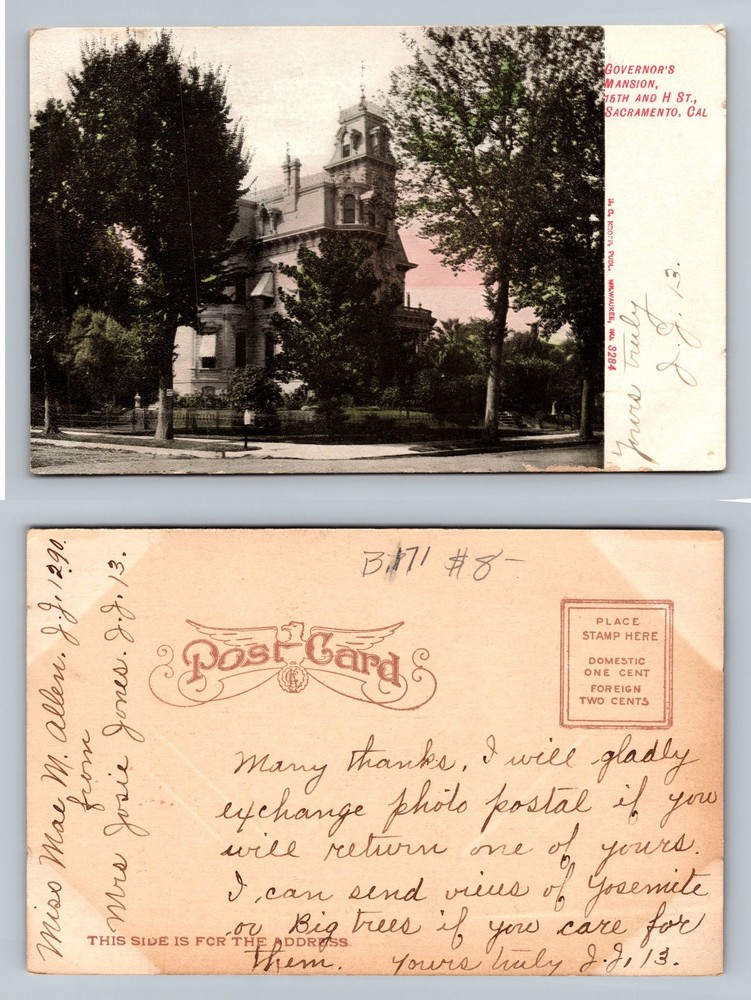 GOVERNOR'S
MANSION,
15TH AND H ST.,
SACRAMENTO, CAL
PUBL. MILWAUKEE, WIS. 3284
Yours truly
J. J. 13.
B171 #8-
Post Card
PLACE
STAMP HERE
DOMESTIC
ONE CENT
FOREIGN
TWO CENTS
Miss Mae M. Allen. J.J. 1290.
from
Mrs Josie Jones. J.J. 13.
Many thanks, I will gladly
exchange photo postal if you
will return one of yours.
I can send views of Yosemite
or Big trees if you care for
them. Yours truly J.J. 13.
THIS SIDE IS FOR THE ADDRESS